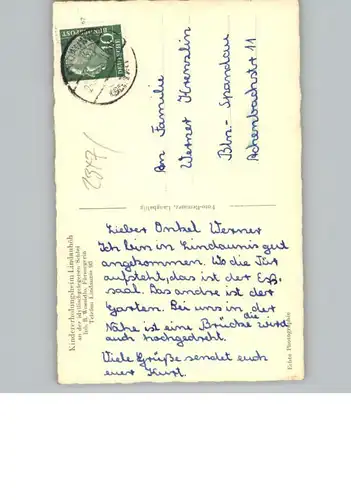 Kindererholungsheim Lindauhöh
an der idyllischgelegenen Schlei
Telefon Lindaunis
Lieber Onkel Werner
Ich bin in Lindaunis gut
angekommen. Wo die Tür
aufsteht, das ist der Eß-
saal. Das andre ist der
Garten. Bei uns in der
Nähe ist eine Brücke die wird
auch hochgedreht.
Viele Grüße sendet euch
euer Kurt.
Echte Photographie
An Familie
Werner Krenzlin
Bln.- Spandau
Achenbachstr 11
10
2347/